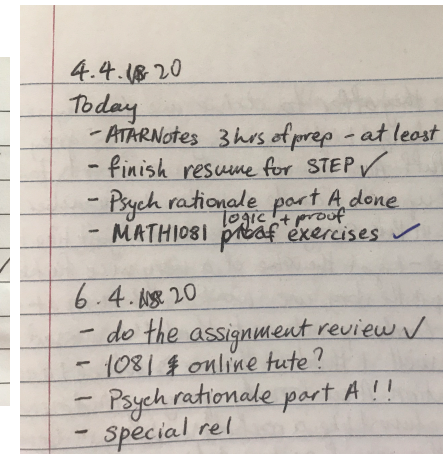 4.4.20
Today
- ATARNotes 3 hrs of prep - at least
- finish resume for STEP ✓
- Psych rationale part A done
- MATH1081 logic + proof exercises ✓
6.4.20
- do the assignment review ✓
- 1081 online tute?
- Psych rationale part A !!
- special rel